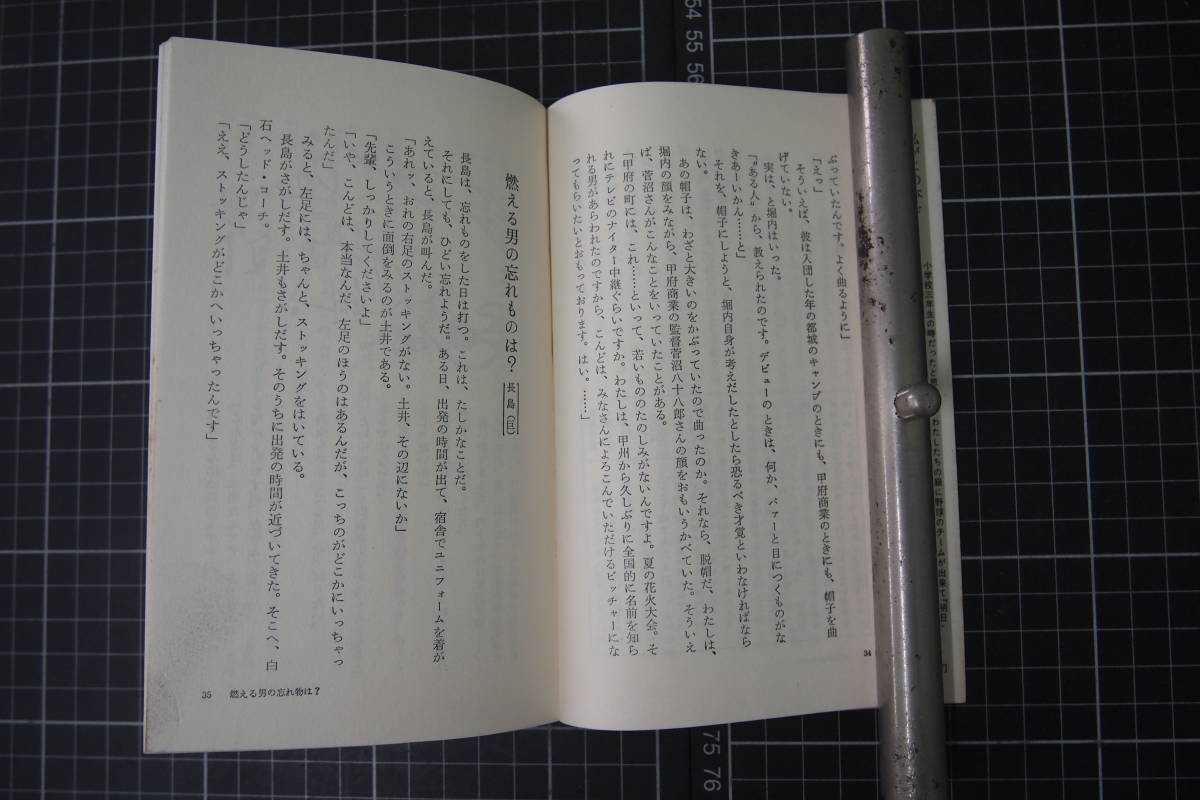 ぶっていたんです。よく曲るように」
「えっ」
そういえば、彼は入団した年の都城のキャンプのときにも、甲府商業のときにも、帽子を曲
げていない。
実は、と堀内はいった。
「〝ある人〟から、教えられたのです。デビューのときは、何か、パァーと目につくものがな
きあーいかん……と」
それを、帽子にしようと、堀内自身が考えだしたとしたら恐るべき才覚といわなければなら
ない。
あの帽子は、わざと大きいのをかぶっていたので曲ったのか。それなら、脱帽だ、わたしは、
堀内の顔をみながら、甲府商業の監督菅沼八十八郎さんの顔をおもいうかべていた。そういえ
ば、菅沼さんがこんなことをいっていたことがある。
「甲府の町には、これ……といって、若いもののたのしみがないんですよ。夏の花火大会。そ
れにテレビのナイター中継ぐらいですか。わたしは、甲州から久しぶりに全国的に名前を知ら
れる男があらわれたのですから、こんどは、みなさんによろこんでいただけるピッチャーにな
ってもらいたいとおもっております。はい。……」
34
燃える男の忘れものは?
長島(巨)
長島は、忘れものをした日は打つ。これは、たしかなことだ。
それにしても、ひどい忘れようだ。ある日、出発の時間が出て、宿舎でユニフォームを着が
えていると、長島が叫んだ。
「あれッ、おれの右足のストッキングがない。土井、その辺にないか」
こういうときに面倒をみるのが土井である。
「先輩、しっかりしてくださいよ」
「いや、こんどは、本当なんだ、左足のほうのはあるんだが、こっちのがどこかにいっちゃっ
たんだ」
みると、左足には、ちゃんと、ストッキングをはいている。
長島がさがしだす。土井もさがしだす。そのうちに出発の時間が近づいてきた。そこへ、白
石ヘッド・コーチ。
「どうしたんじゃ」
「ええ、ストッキングがどこかへいっちゃったんです」
35 燃える男の忘れ物は?
小学校三年生の時だったと
わたしたちの級に野球のチームが出来て「明日
54 55 56
75 76